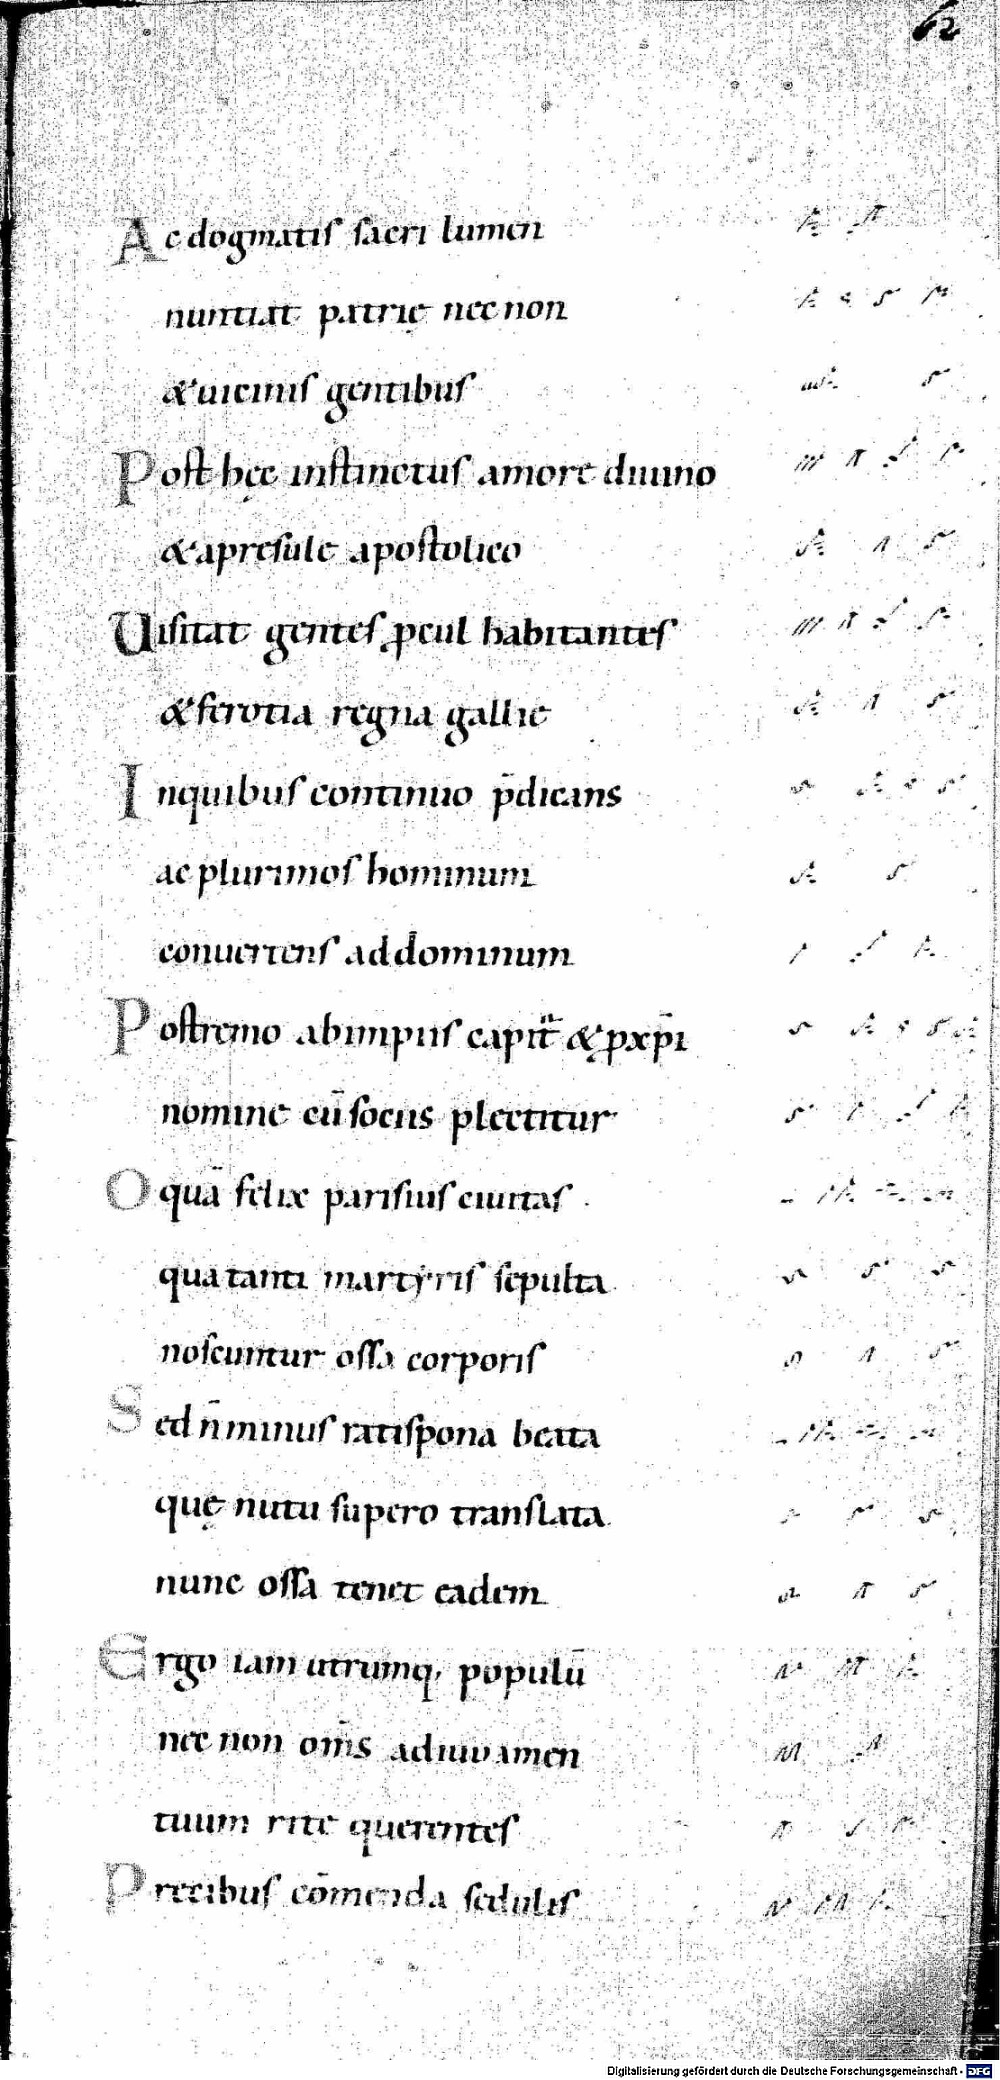 62
Ac dogmatis sacri lumen
nuntiat patrię nec non
& uicinis gentibus
Post hęc instinctus amore diuino
& apresule apostolico
Uisitat gentes ꝓcul habitantes
& ferotia regna gallie
Inquibus continuo p̄dicans
ac plurimos hominum
conuertens ad dominum
Postremo abimpiis capit̄ & ꝓ xp̄i
nomine cū sociis plectitur
O quā felix parisius ciuitas .
qua tanti martyris sepulta
noscuntur ossa corporis
Sed n̄ minus ratispona beata
quę nutu supero translata
nunc ossa tenet eadem
Ergo iam utrumq; populū
nec non om̄s adiuuamen
tuum rite querentes
Precibus cōmenda sedulis
Digitalisierung gefördert durch die Deutsche Forschungsgemeinschaft - DFG